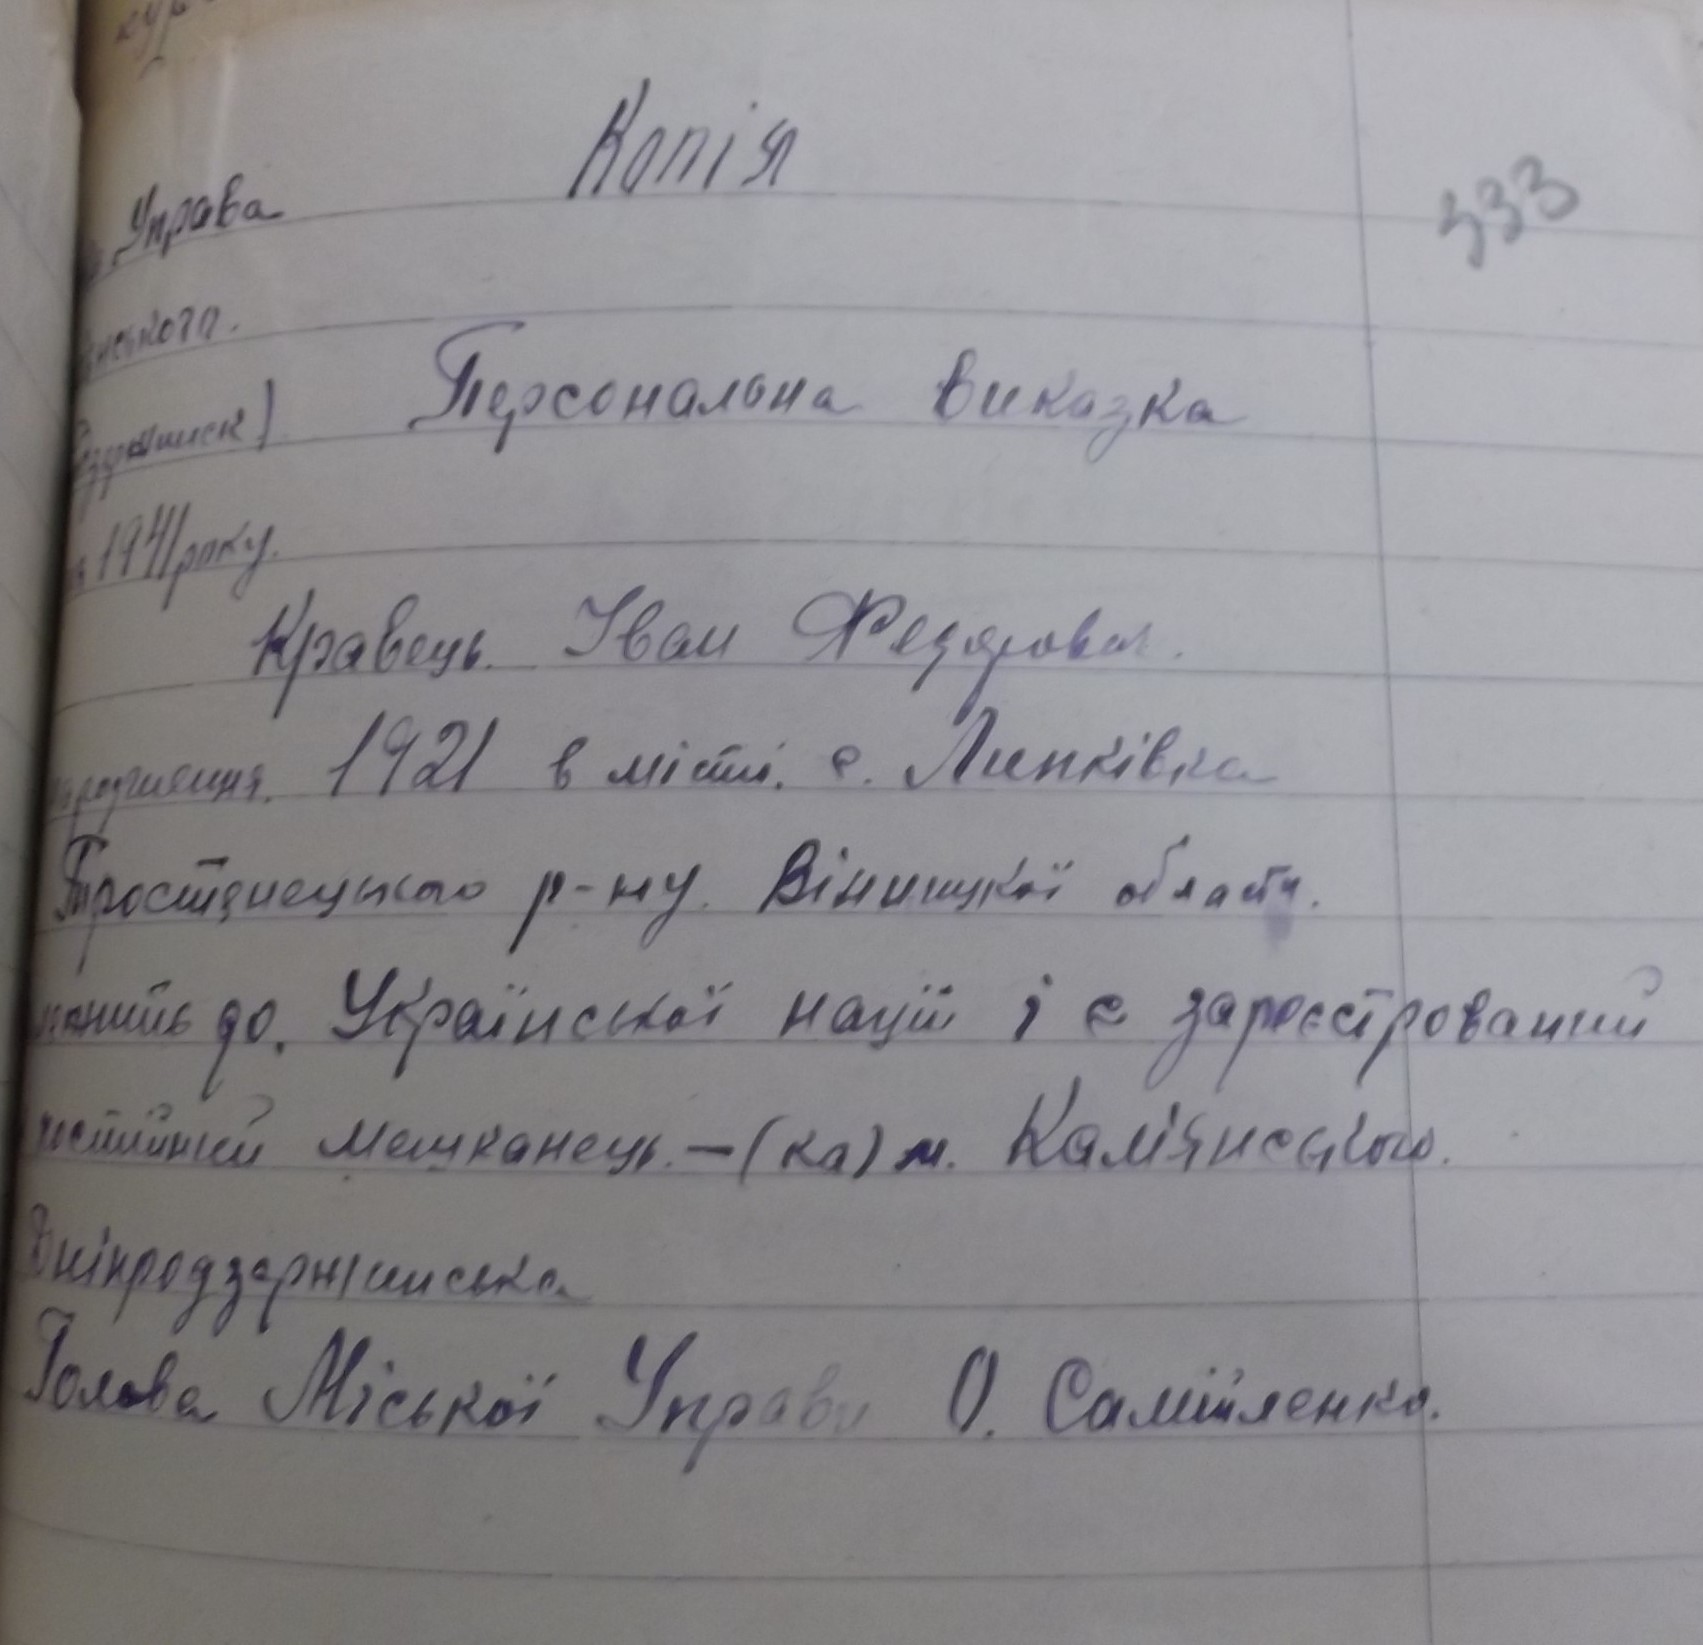 Копія
333
Управа
нського.
дзержинск)
1941 року.
Кравець. Іван Федорович.
народження. 1921 в місті. с. Липківка
Тростянецького р-ну. Вінницкої области.
лежить до. Української нації і є зареєстрований
постійний мешканець. — (ка) м. Камʼянського.
Дніпродзержинська
Голова Міської Управи О. Самійленко.